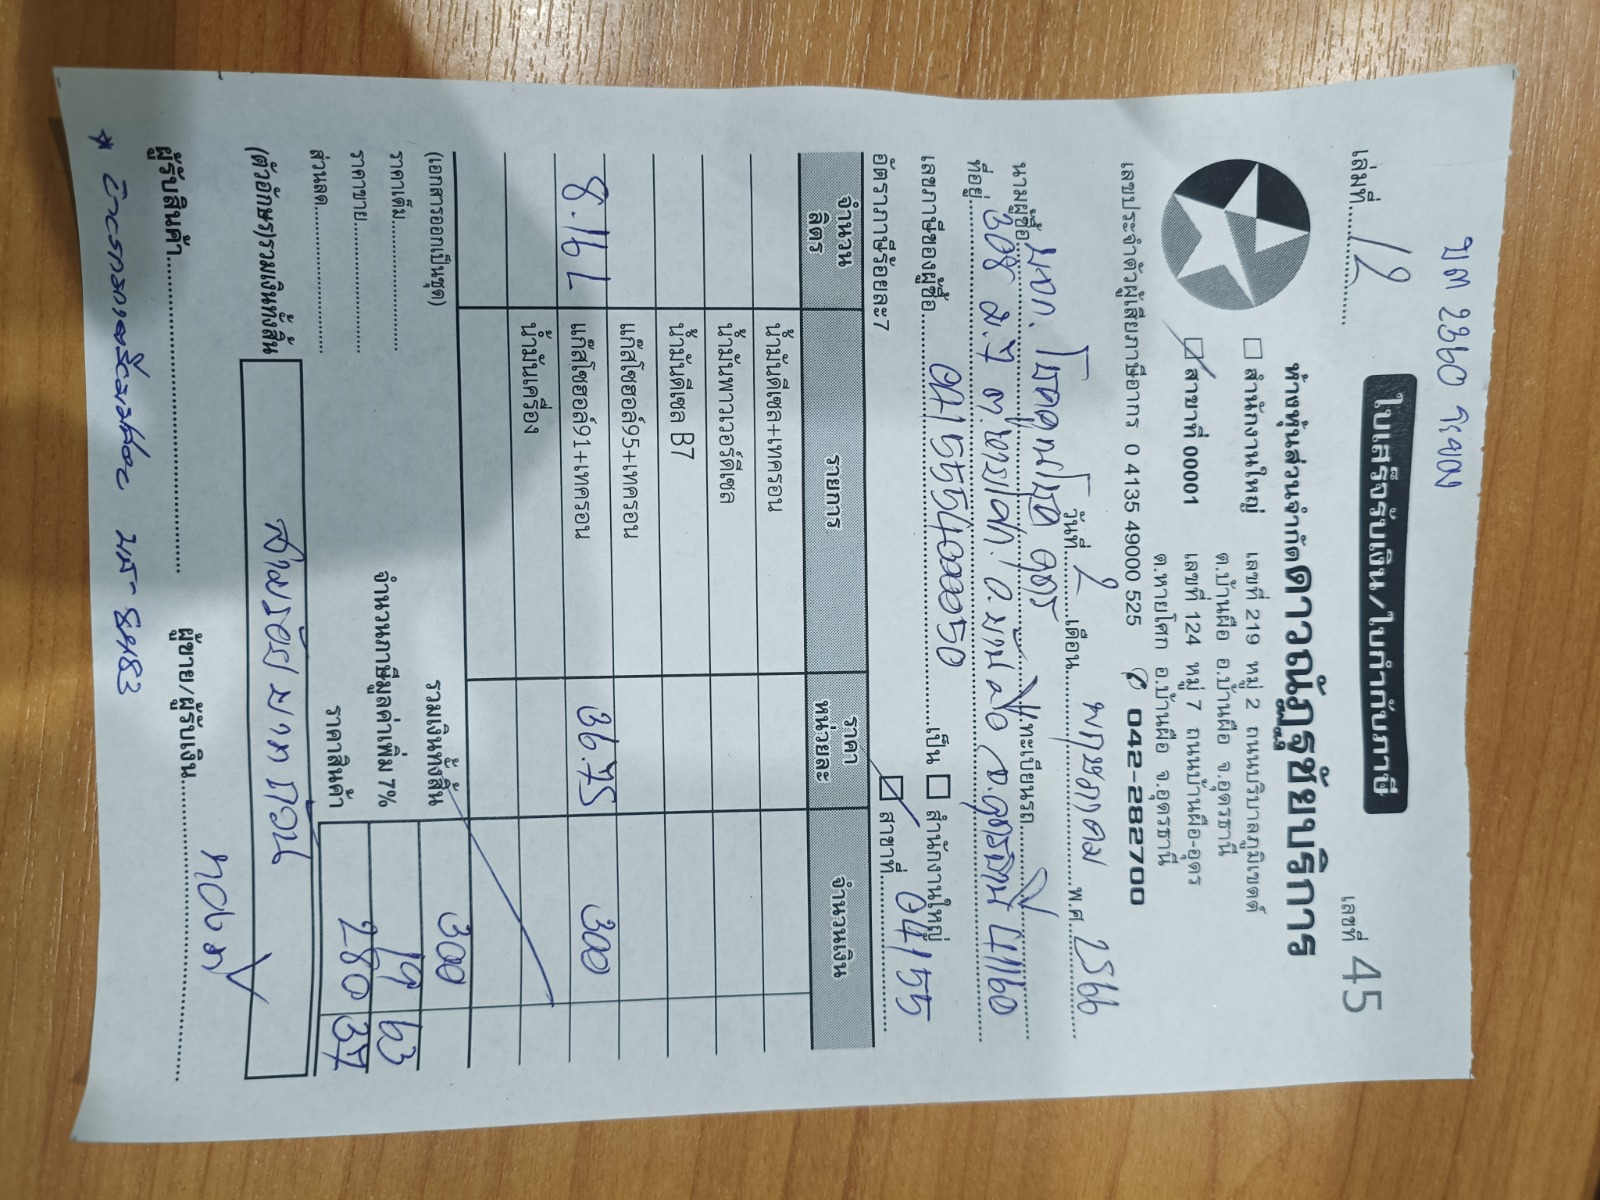 ขต 2360 ระยอง
เล่มที่ 12 ใบเสร็จรับเงิน/ใบกำกับภาษี เลขที่ 45
ห้างหุ้นส่วนจำกัดดาวณัฏฐชัยบริการ
สำนักงานใหญ่ เลขที่ 219 หมู่ 2 ถนนบริบาลภูมิเขตต์
ต.บ้านผือ อ.บ้านผือ จ.อุดรธานี
สาขาที่ 00001 เลขที่ 124 หมู่ 7 ถนนบ้านผือ-อุดร
ต.หายโศก อ.บ้านผือ จ.อุดรธานี
เลขประจำตัวผู้เสียภาษีอากร 0 4135 49000 525 042-282700
วันที่ 2 เดือน พฤษภาคม พ.ศ. 2566
นามผู้ซื้อ บจก. อุดร ทะเบียนรถ
ที่อยู่ 308 ม.7 อ.บ้านผือ จ.อุดรธานี 41160
เลขภาษีของผู้ซื้อ 0415554000050 เป็น สำนักงานใหญ่
อัตราภาษีร้อยละ 7 สาขาที่ 04155
จำนวนลิตร รายการ ราคาหน่วยละ จำนวนเงิน
น้ำมันดีเซล+เทครอน
น้ำมันพาวเวอร์ดีเซล
น้ำมันดีเซล B7
แก๊สโซฮอล์95+เทครอน
8.16 L แก๊สโซฮอล์91+เทครอน 36.75 300
น้ำมันเครื่อง
(เอกสารออกเป็นชุด) รวมเงินทั้งสิ้น 300
ราคาเต็ม จำนวนภาษีมูลค่าเพิ่ม 7% 19 63
ราคาขาย
ส่วนลด ราคาสินค้า 280 37
(ตัวอักษร)รวมเงินทั้งสิ้น สามร้อยบาทถ้วน
ผู้รับสินค้า ผู้ขาย/ผู้รับเงิน